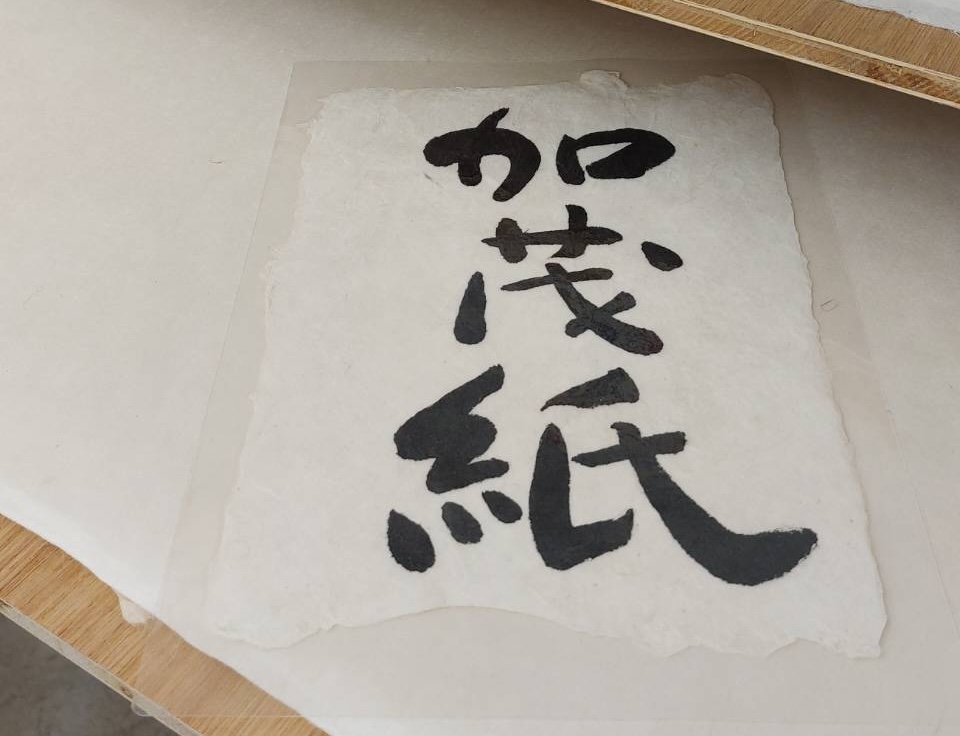 加茂紙